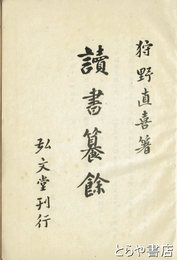 狩野直喜著
讀書籑餘
弘文堂刊行
とらや書店